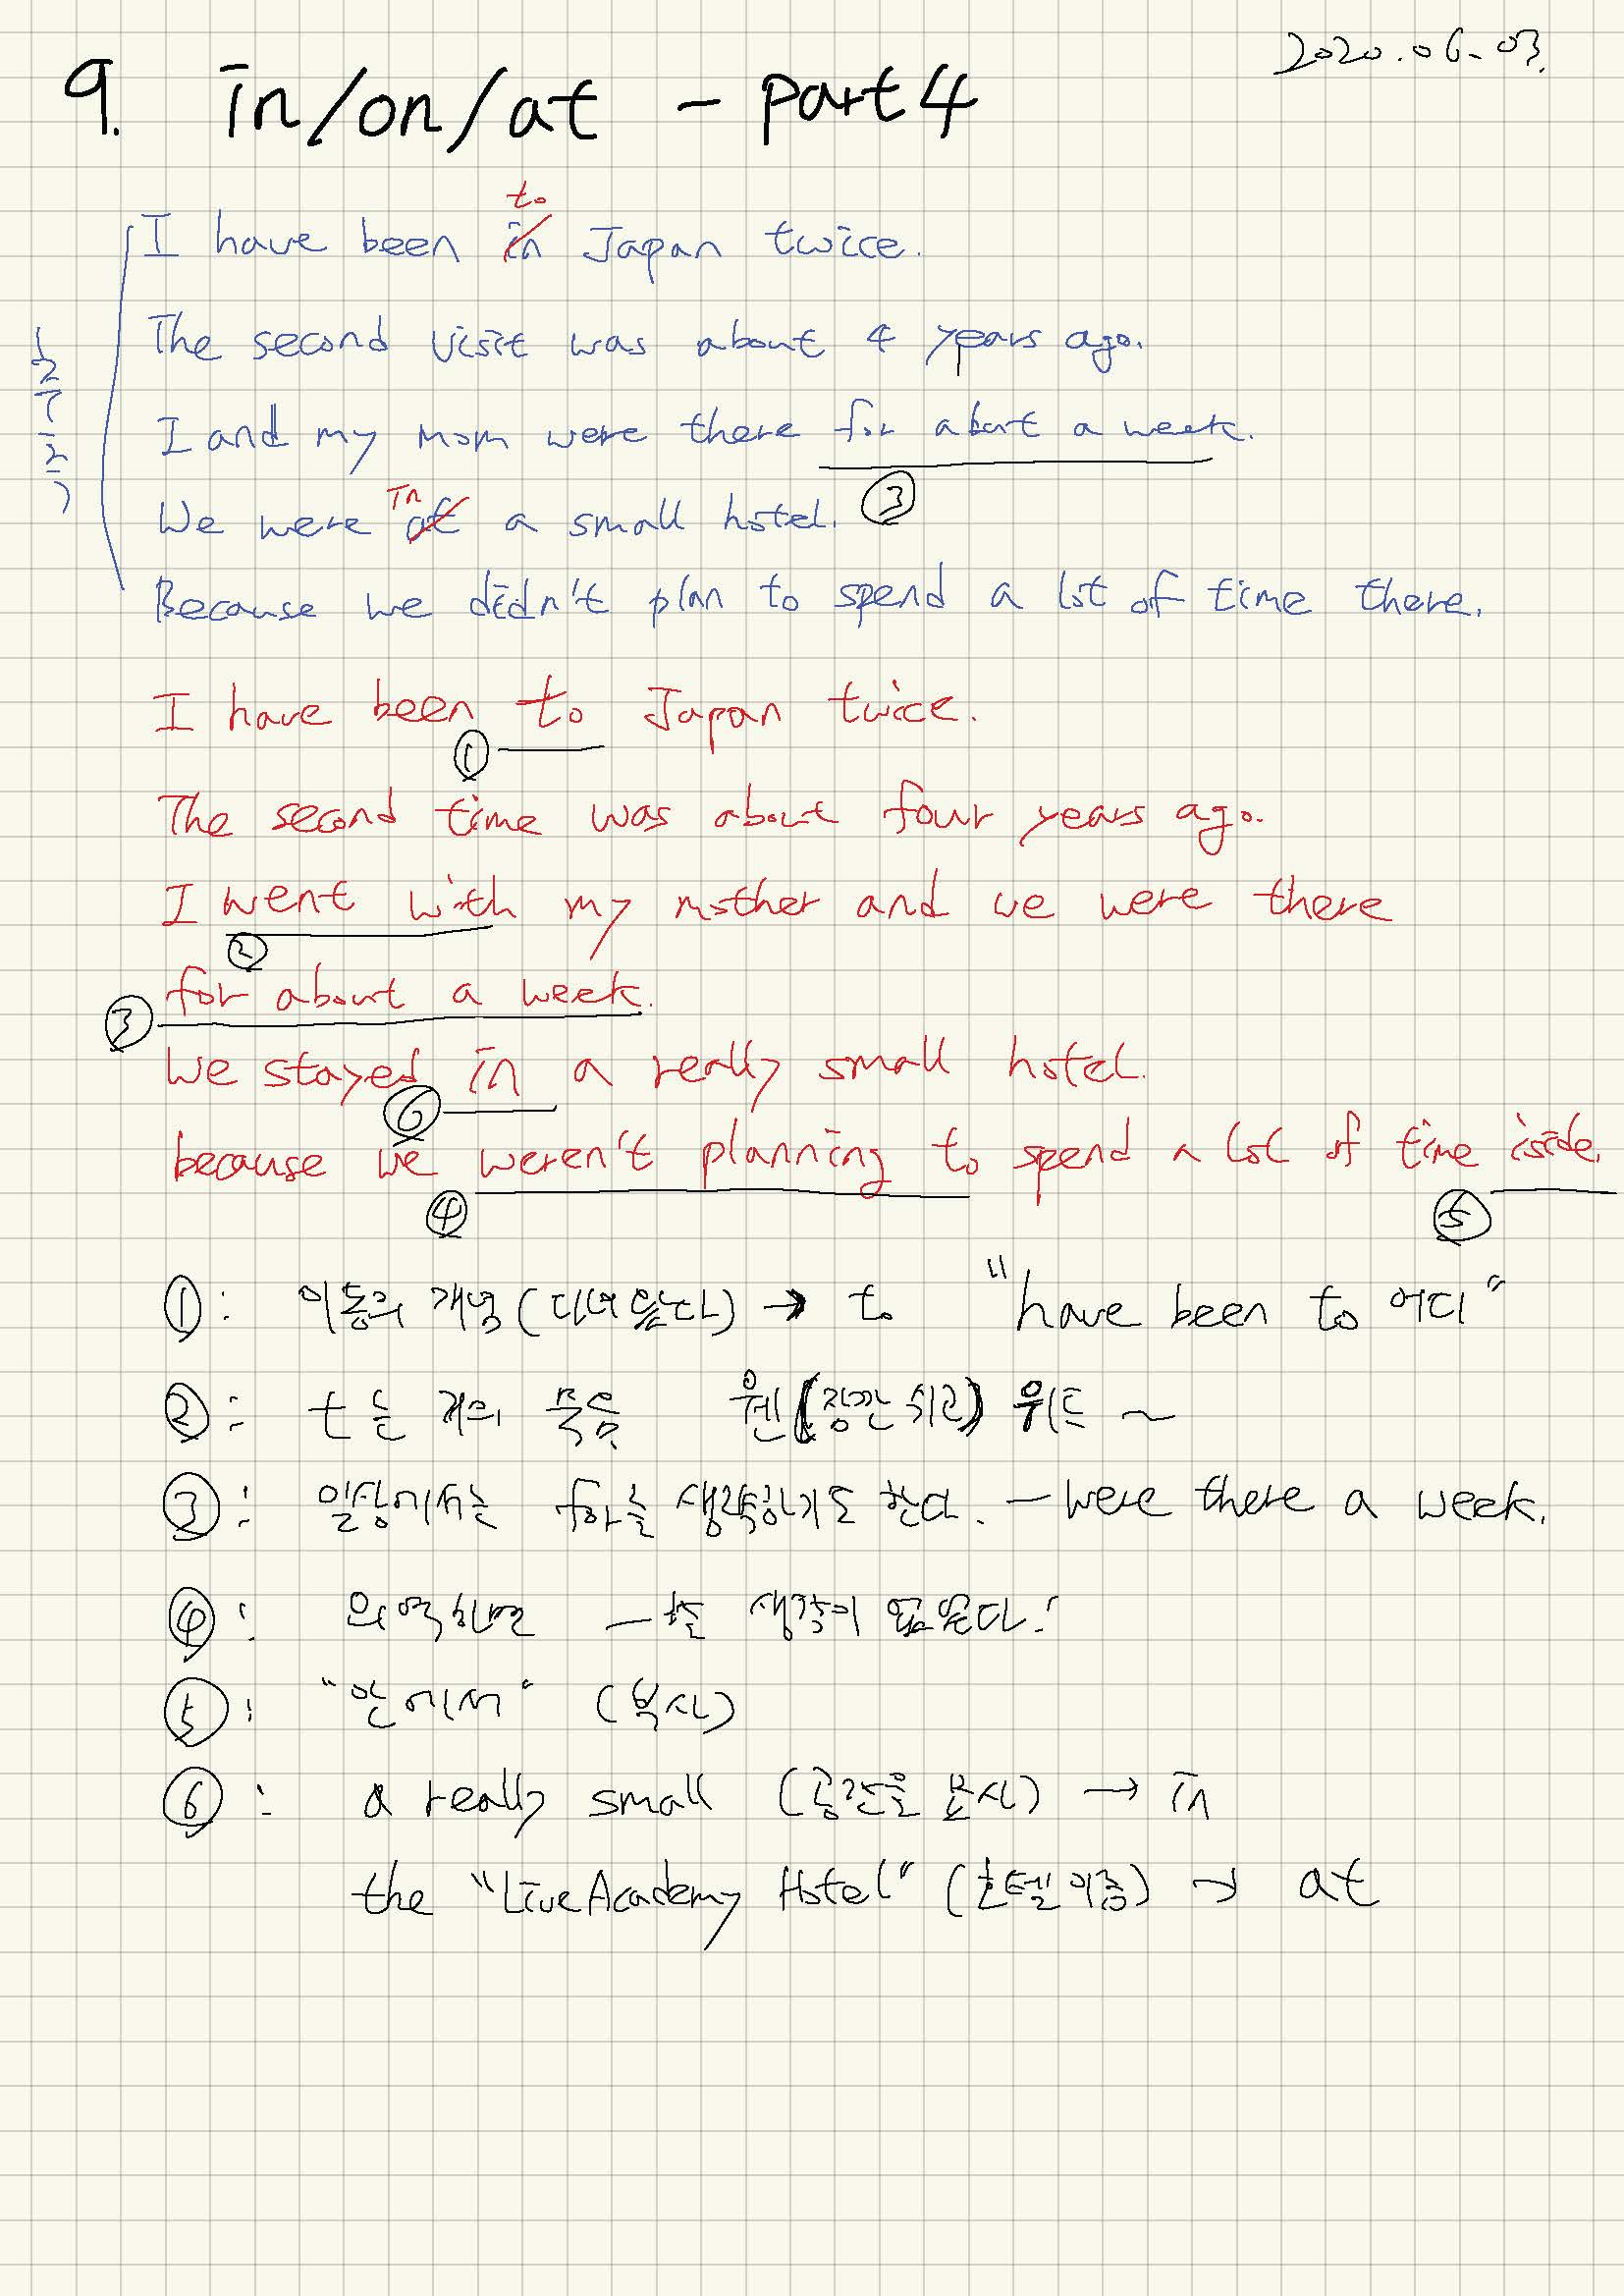 2020.06.03.
9. in/on/at - part4
to
I have been in Japan twice.
The second visit was about 4 years ago.
I and my mom were there for about a week.
③
in
We were at a small hotel.
Because we didn't plan to spend a lot of time there.
I have been to Japan twice.
①
The second time was about four years ago.
I went with my mother and we were there
②
③ for about a week.
We stayed in a really small hotel.
⑥
because we weren't planning to spend a lot of time iside.
④ ⑤
①: 이동의 개념 (다녀왔다) → to "have been to 어디"
②: t는 거의 묵음 웬(잠깐 쉬고) 위드 ~
③: 일상에서는 for를 생략하기도 한다. - were there a week.
④: 의역하면 -할 생각이 없었다!
⑤: "안에서" (부사)
⑥: a really small (공간을 묘사) → in
the "LiveAcademy Hotel" (호텔이름) → at